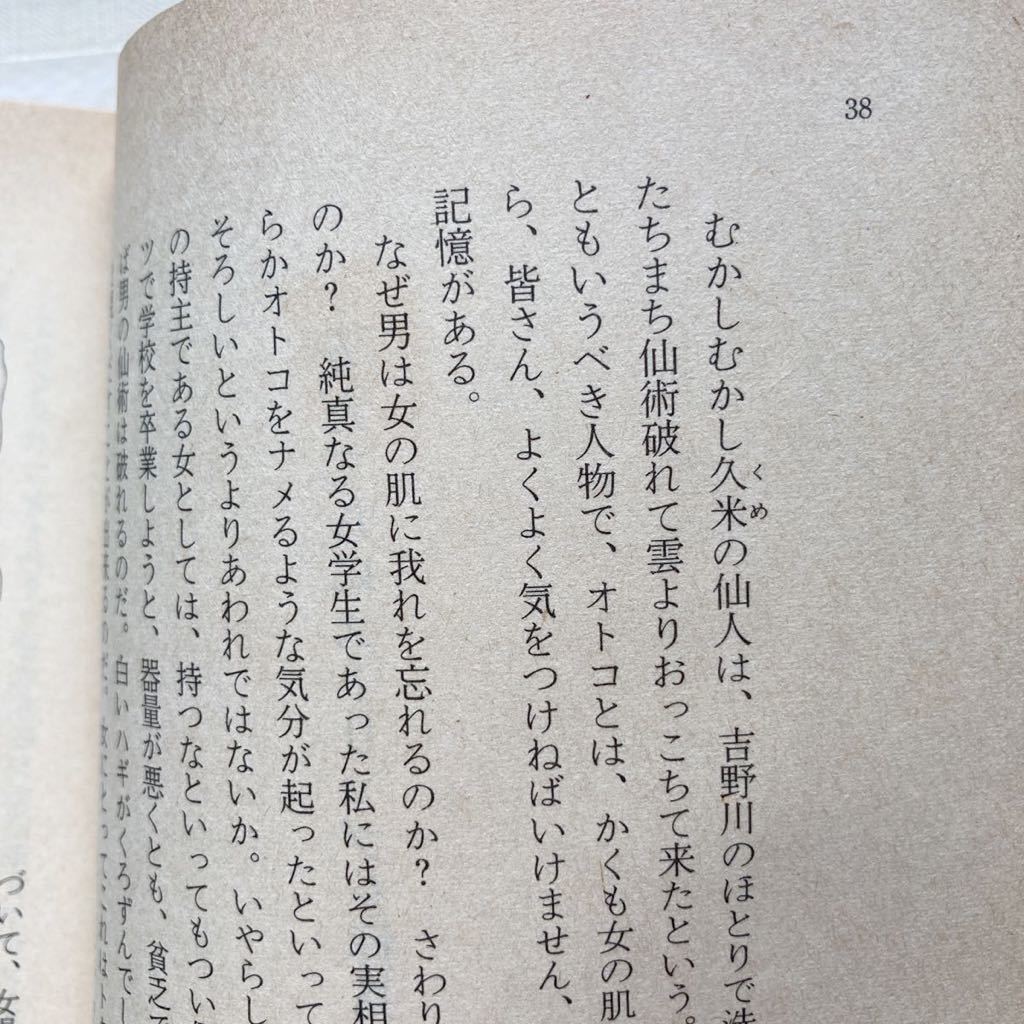 38
むかしむかし久米の仙人は、吉野川のほとりで洗
くめ
たちまち仙術破れて雲よりおっこちて来たという。
ともいうべき人物で、オトコとは、かくも女の肌
ら、皆さん、よくよく気をつけねばいけません、
記憶がある。
なぜ男は女の肌に我れを忘れるのか? さわり
のか? 純真なる女学生であった私にはその実相
らかオトコをナメるような気分が起ったといって
そろしいというよりあわれではないか。いやらし
の持主である女としては、持つなといってもつい
ツで学校を卒業しようと、器量が悪くとも、貧乏で
ば男の仙術は破れるのだ。白いハギがくろずんでし
づいて、女